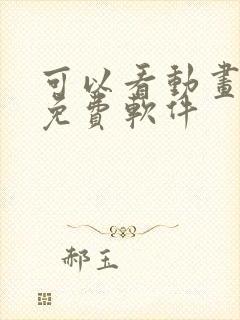 可以看動畫
免費軟件
郝玉